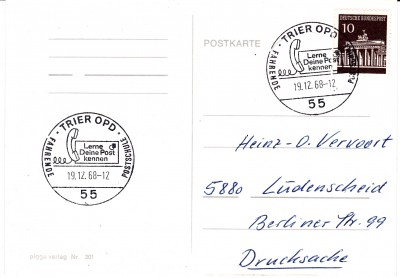 POSTKARTE
10
DEUTSCHE BUNDESPOST
TRIER OPD
FAHRENDE POSTSCHULE
Lerne
Deine Post
kennen
19.12.68-12
55
TRIER OPD
FAHRENDE POSTSCHULE
Lerne
Deine Post
kennen
19.12.68-12
55
Heinz-D. Vervoort
5880 Lüdenscheid
Berliner Str. 99
Drucksache
Verlag Nr. 301